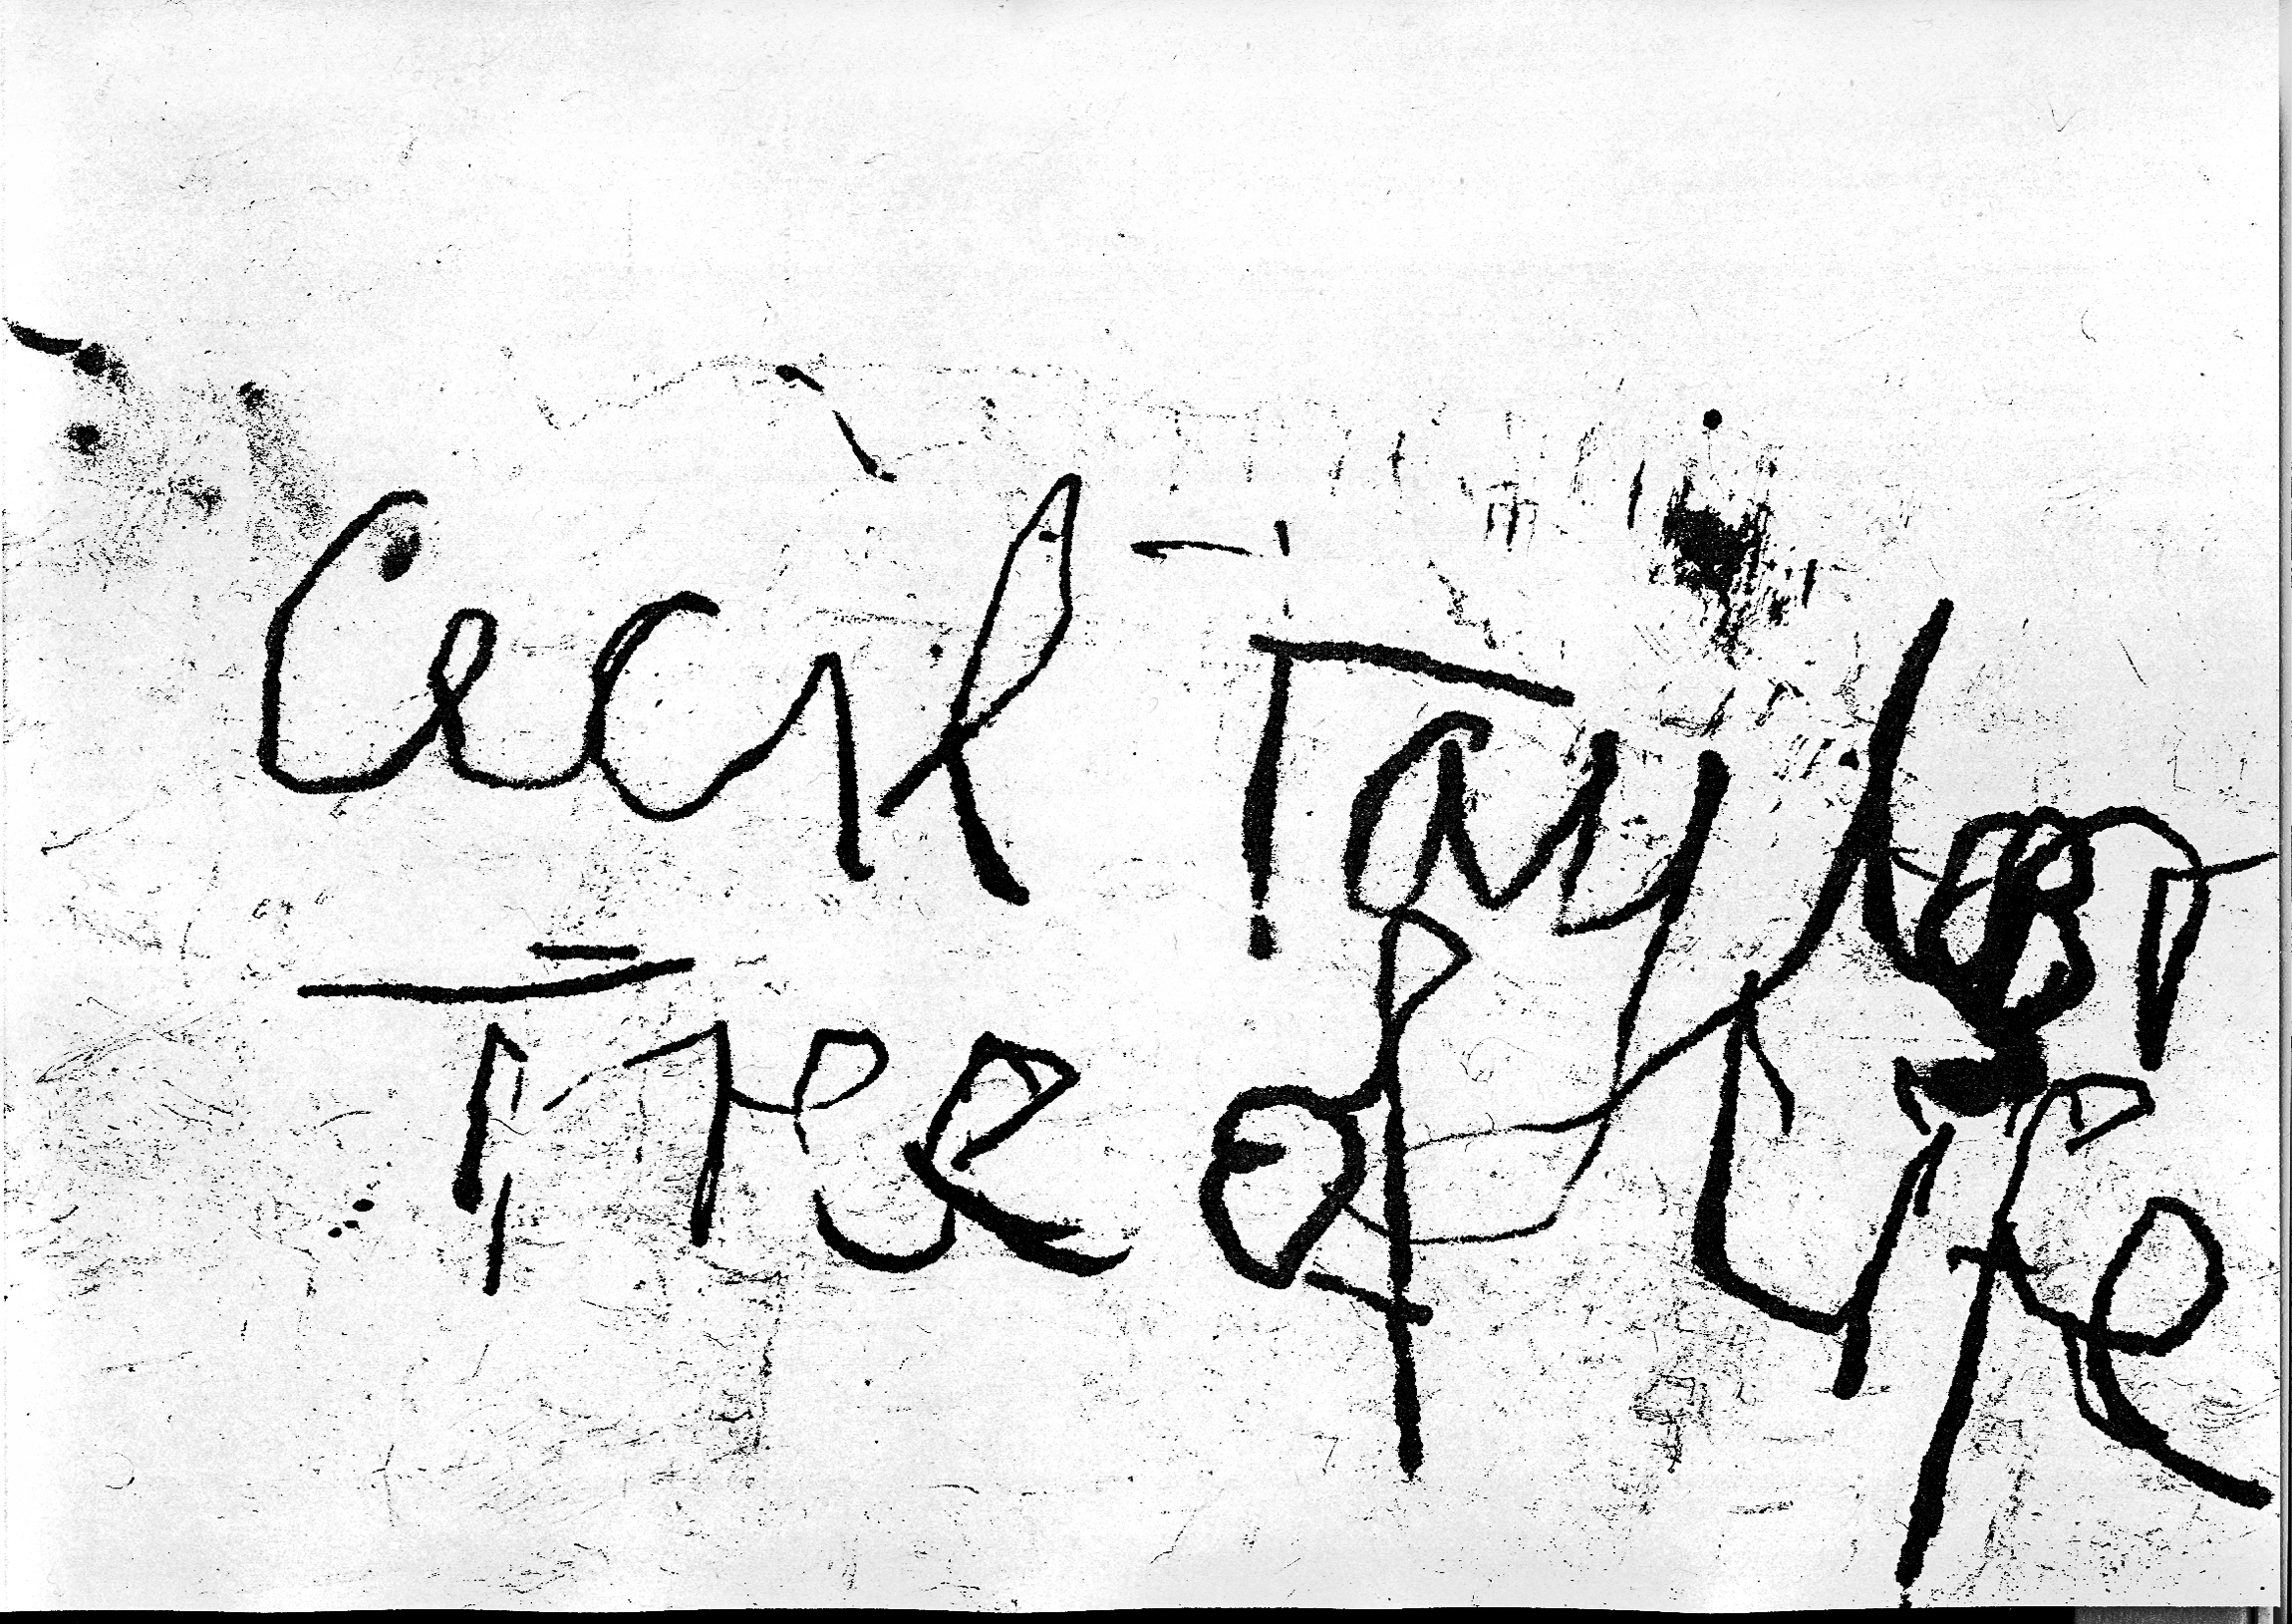 Cecil Taylor
Tree of Life